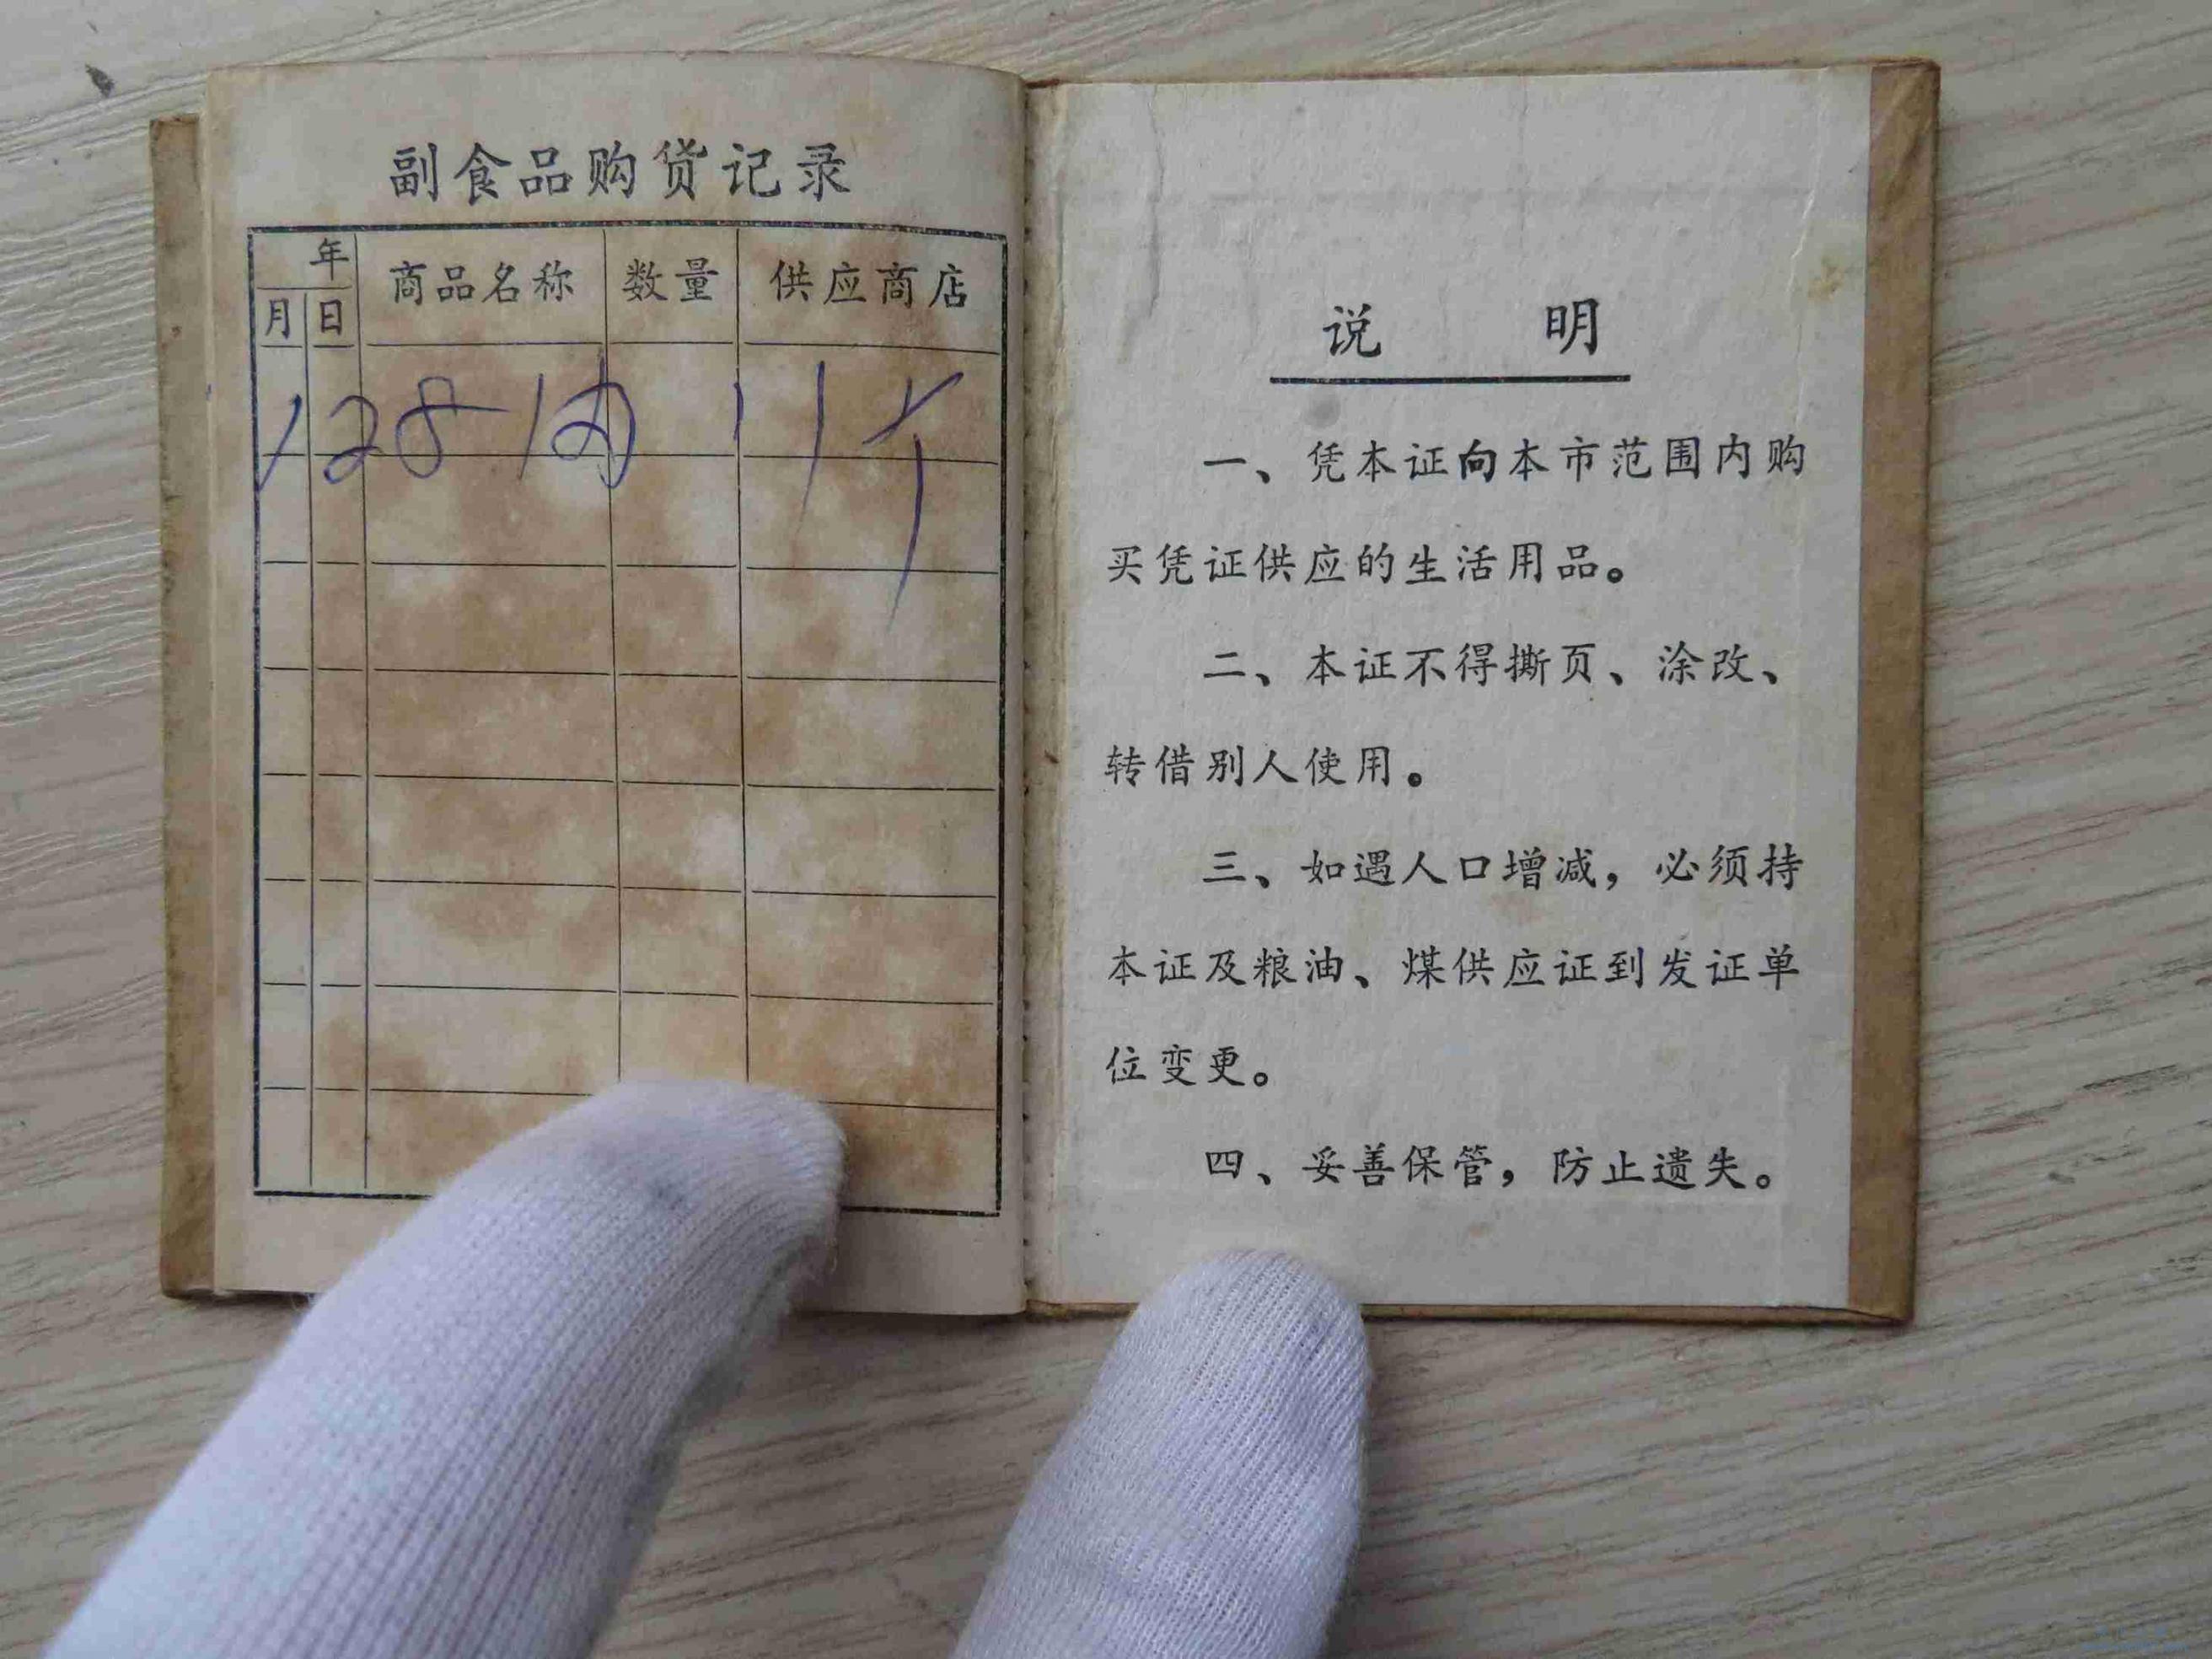 副食品购货记录
年
月 日 商品名称 数量 供应商店
说 明
一、凭本证向本市范围内购
买凭证供应的生活用品。
二、本证不得撕页、涂改、
转借别人使用。
三、如遇人口增减，必须持
本证及粮油、煤供应证到发证单
位变更。
四、妥善保管，防止遗失。